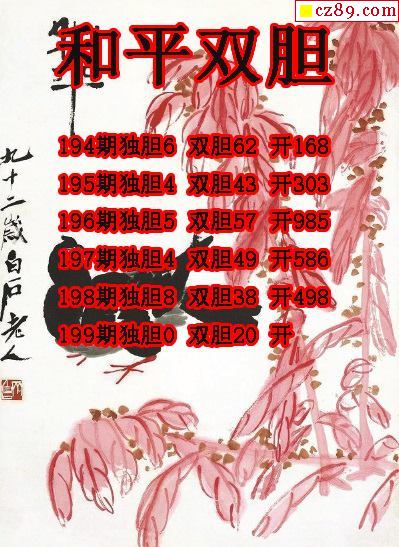 cz89.com
和平双胆
194期独胆6 双胆62 开168
195期独胆4 双胆43 开303
196期独胆5 双胆57 开985
197期独胆4 双胆49 开586
198期独胆8 双胆38 开498
199期独胆0 双胆20 开
九十二岁白石老人